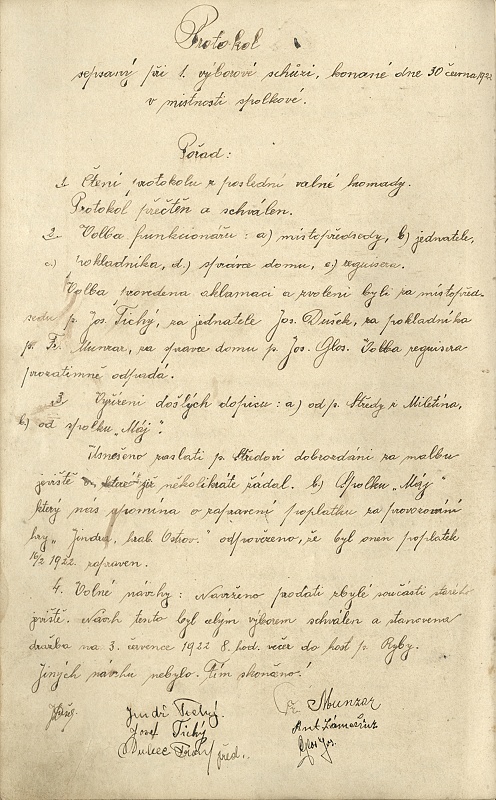 Protokol
sepsaný při 1. výborové schůzi, konané dne 30 června 1922
v místnosti spolkové.
Pořad:
1. Čtení protokolu z poslední valné hromady.
Protokol přečten a schválen.
2. Volba funkcionářů: a) místopředsedy, b) jednatele,
c.) pokladníka, d.) správce domu, e.) reguisera.
Volba provedena aklamací a zvoleni byli za místopřed-
sedu p. Jos. Tichý, za jednatele Jos. Dušek, za pokladníka
p. Fr. Munzar, za správce domu p. Jos. Glos. Volba reguisera
prozatimně odpadá.
3. Vyřízení došlých dopisů: a) od p. Středy z Miletína,
b) od spolku "Máj".
Usnešeno zaslati p. Středovi dobrozdání za malbu
jeviště několikráte žádal. b) Spolku "Máj"
který nás upomíná o zapravení poplatku za provozování
hry "Jindra, hrab. Ostrov." odpovězeno, že byl onen poplatek
16/2 1922. zapraven.
4. Volné návrhy: Navrženo prodati zbylé součásti starého
jeviště. Návrh tento byl celým výborem schválen a stanovena
dražba na 3. července 1922 8. hod. večer do host p. Ryby.
Jiných návrhů nebylo. Tím skončeno!
Jindř Tichý.
Josef Tichý
Fr. Munzar
Glos Jos.
před.